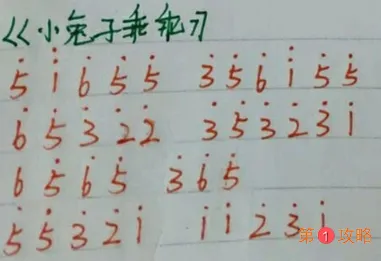 《小兔子乖乖》
5̇ i̇ 6̇ 5̇ 5̇ 3̇ 5̇ 6̇ i̇ 5̇ 5̇
6̇ 5̇ 3̇ 2̇ 2̇ 3̇ 5̇ 3̇ 2̇ 3̇ i̇
6̇ 5̇ 6̇ 5̇ 3̇ 6̇ 5̇
5̇ 5̇ 3̇ 2̇ i̇ i̇ i̇ 2̇ 3̇ i̇
第1攻略